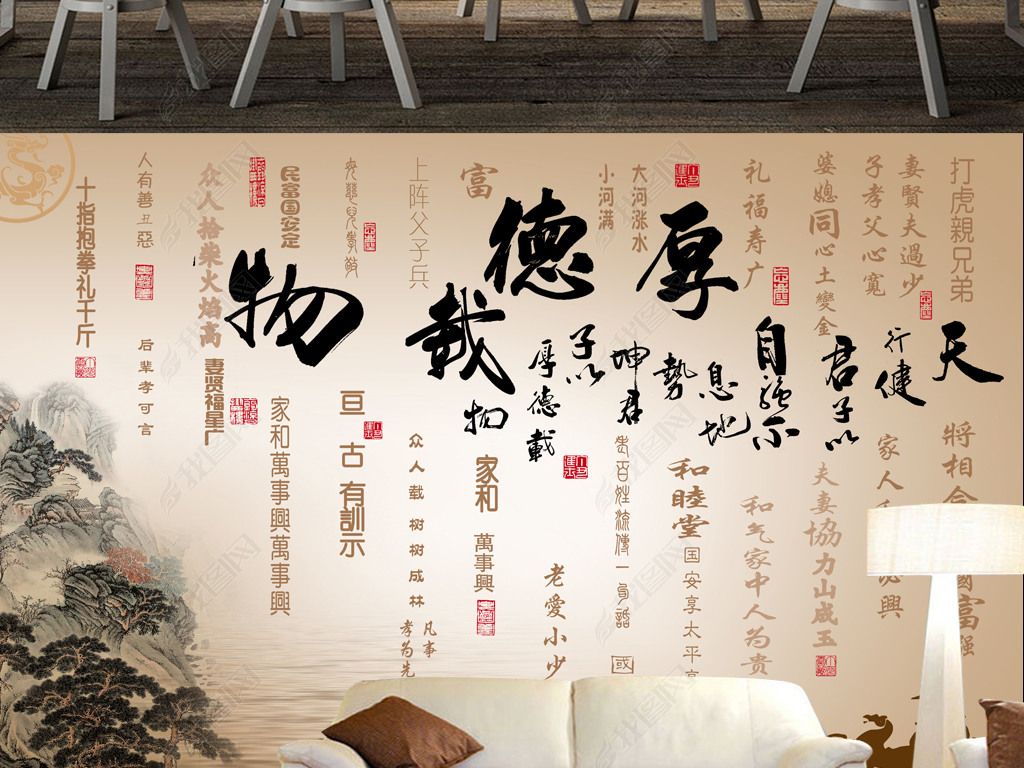 打虎親兄弟
將相合
妻賢夫過少
子孝父心寬
天
行健
家人
興
君子以
婆媳同心土變金
夫妻協力山成玉
自強不
息地
勢
坤君
子以
厚德載
物
礼福寿广
和气家中人为贵
厚德載物
和睦堂
国安享太平
大河涨水
小河满
老愛小少
富
家和
萬事興
上阵父子兵
众人载树树成林
凡事
孝为先
亘古有訓示
民富国安定
家和萬事興萬事興
众人拾柴火焰高
妻贤福星广
人有善丑惡
后辈孝可言
十指抱拳礼千斤